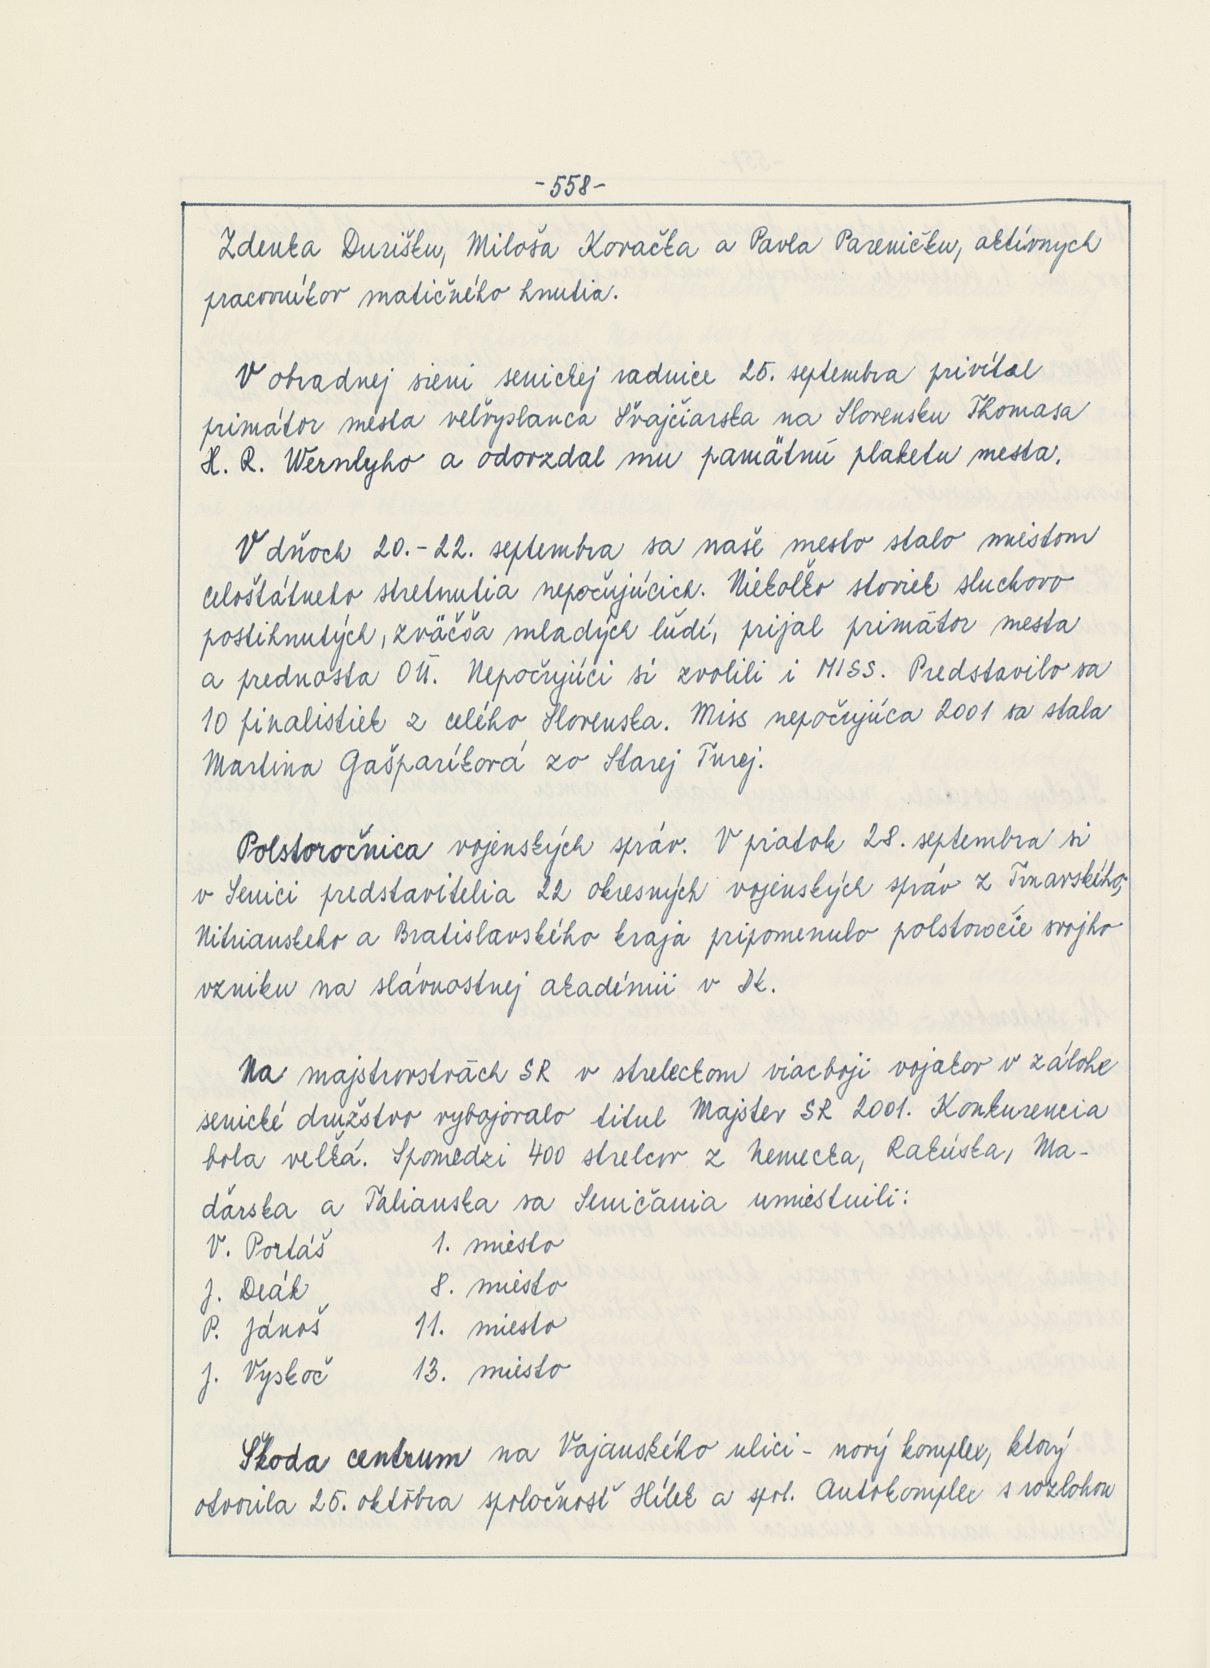 -558-
Zdenka Ďurišku, Miloša Kovačka a Pavla Pareničku, aktívnych
pracovníkov matičného hnutia.
V obradnej sieni senickej radnice 25. septembra privítal
primátor mesta veľvyslanca Švajčiarska na Slovensku Thomasa
H. R. Wernlyho a odovzdal mu pamätnú plaketu mesta.
V dňoch 20.-22. septembra sa naše mesto stalo miestom
celoštátneho stretnutia nepočujúcich. Niekoľko stoviek sluchovo
postihnutých, zväčša mladých ľudí, prijal primátor mesta
a prednosta OÚ. Nepočujúci si zvolili i MISS. Predstavilo sa
10 finalistiek z celého Slovenska. Miss nepočujúca 2001 sa stala
Martina Gašparíková zo Starej Turej.
Polstoročnica vojenských správ. V piatok 28. septembra si
v Senici predstavitelia 22 okresných vojenských správ z Trnavského,
Nitrianskeho a Bratislavského kraja pripomenulo polstoročie svojho
vzniku na slávnostnej akadémii v DK.
Na majstrovstvách SR v streleckom viacboji vojakov v zálohe
senické družstvo vybojovalo titul Majster SR 2001. Konkurencia
bola veľká. Spomedzi 400 strelcov z Nemecka, Rakúska, Ma-
ďarska a Talianska sa Seničania umiestnili:
V. Portáš 1. miesto
J. Deák 8. miesto
P. Jánoš 11. miesto
J. Vyskoč 13. miesto
Škoda centrum na Vajanského ulici - nový komplex, ktorý
otvorila 25. októbra spoločnosť Hílek a spol. Autokomplex s rozlohou